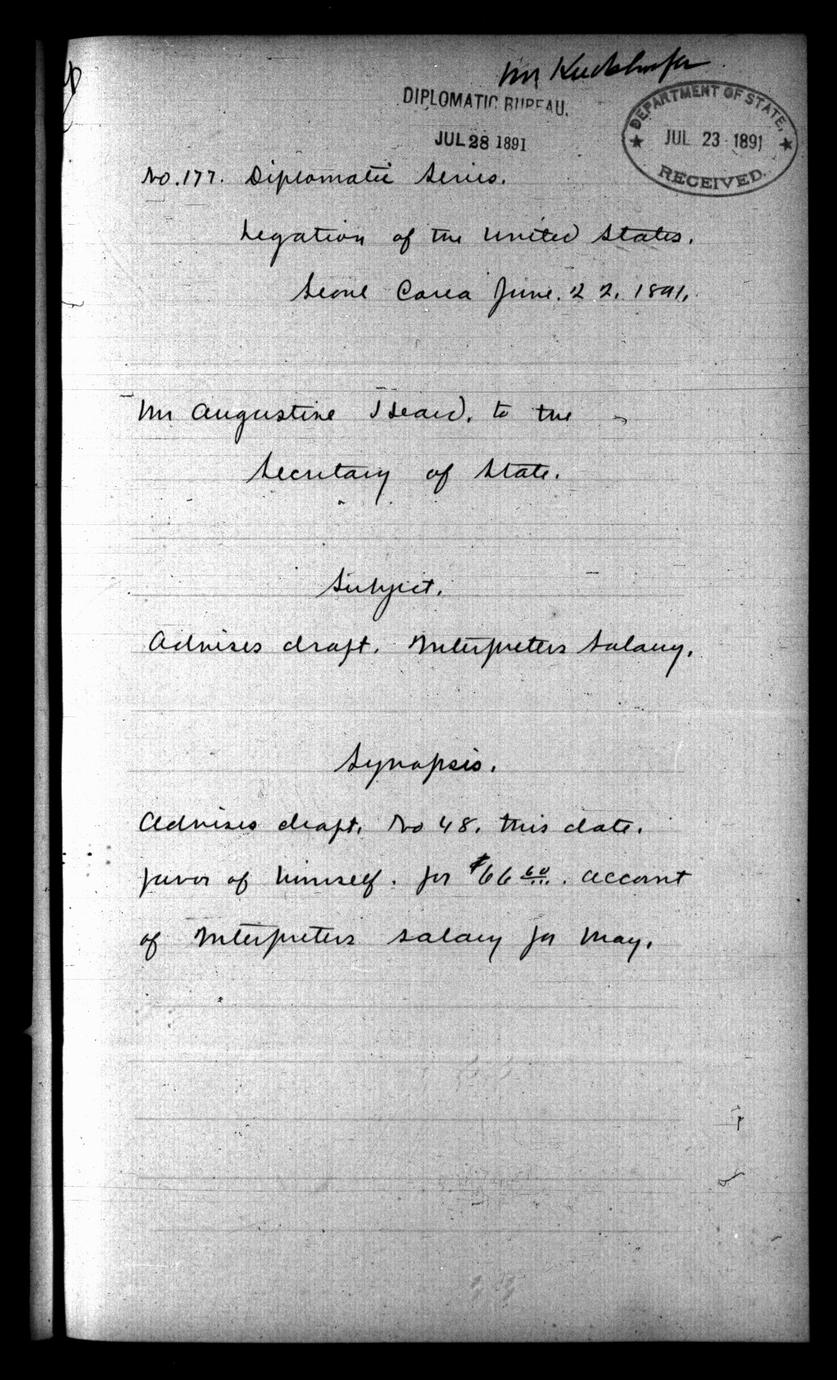 Mr Kuehhofer
DIPLOMATIC BUREAU.
JUL 28 1891
DEPARTMENT OF STATE,
JUL 23 1891
RECEIVED.
No. 177. Diplomatic Series.
Legation of the United States.
Seoul Corea June. 22. 1891.
Mr Augustine Heard, to the
Secretary of State.
Subject.
Advises draft. Interpreters Salary.
Synopsis.
Advises draft. No 48. this date.
favor of himself. for $66 60. account
of Interpreters salary for May.